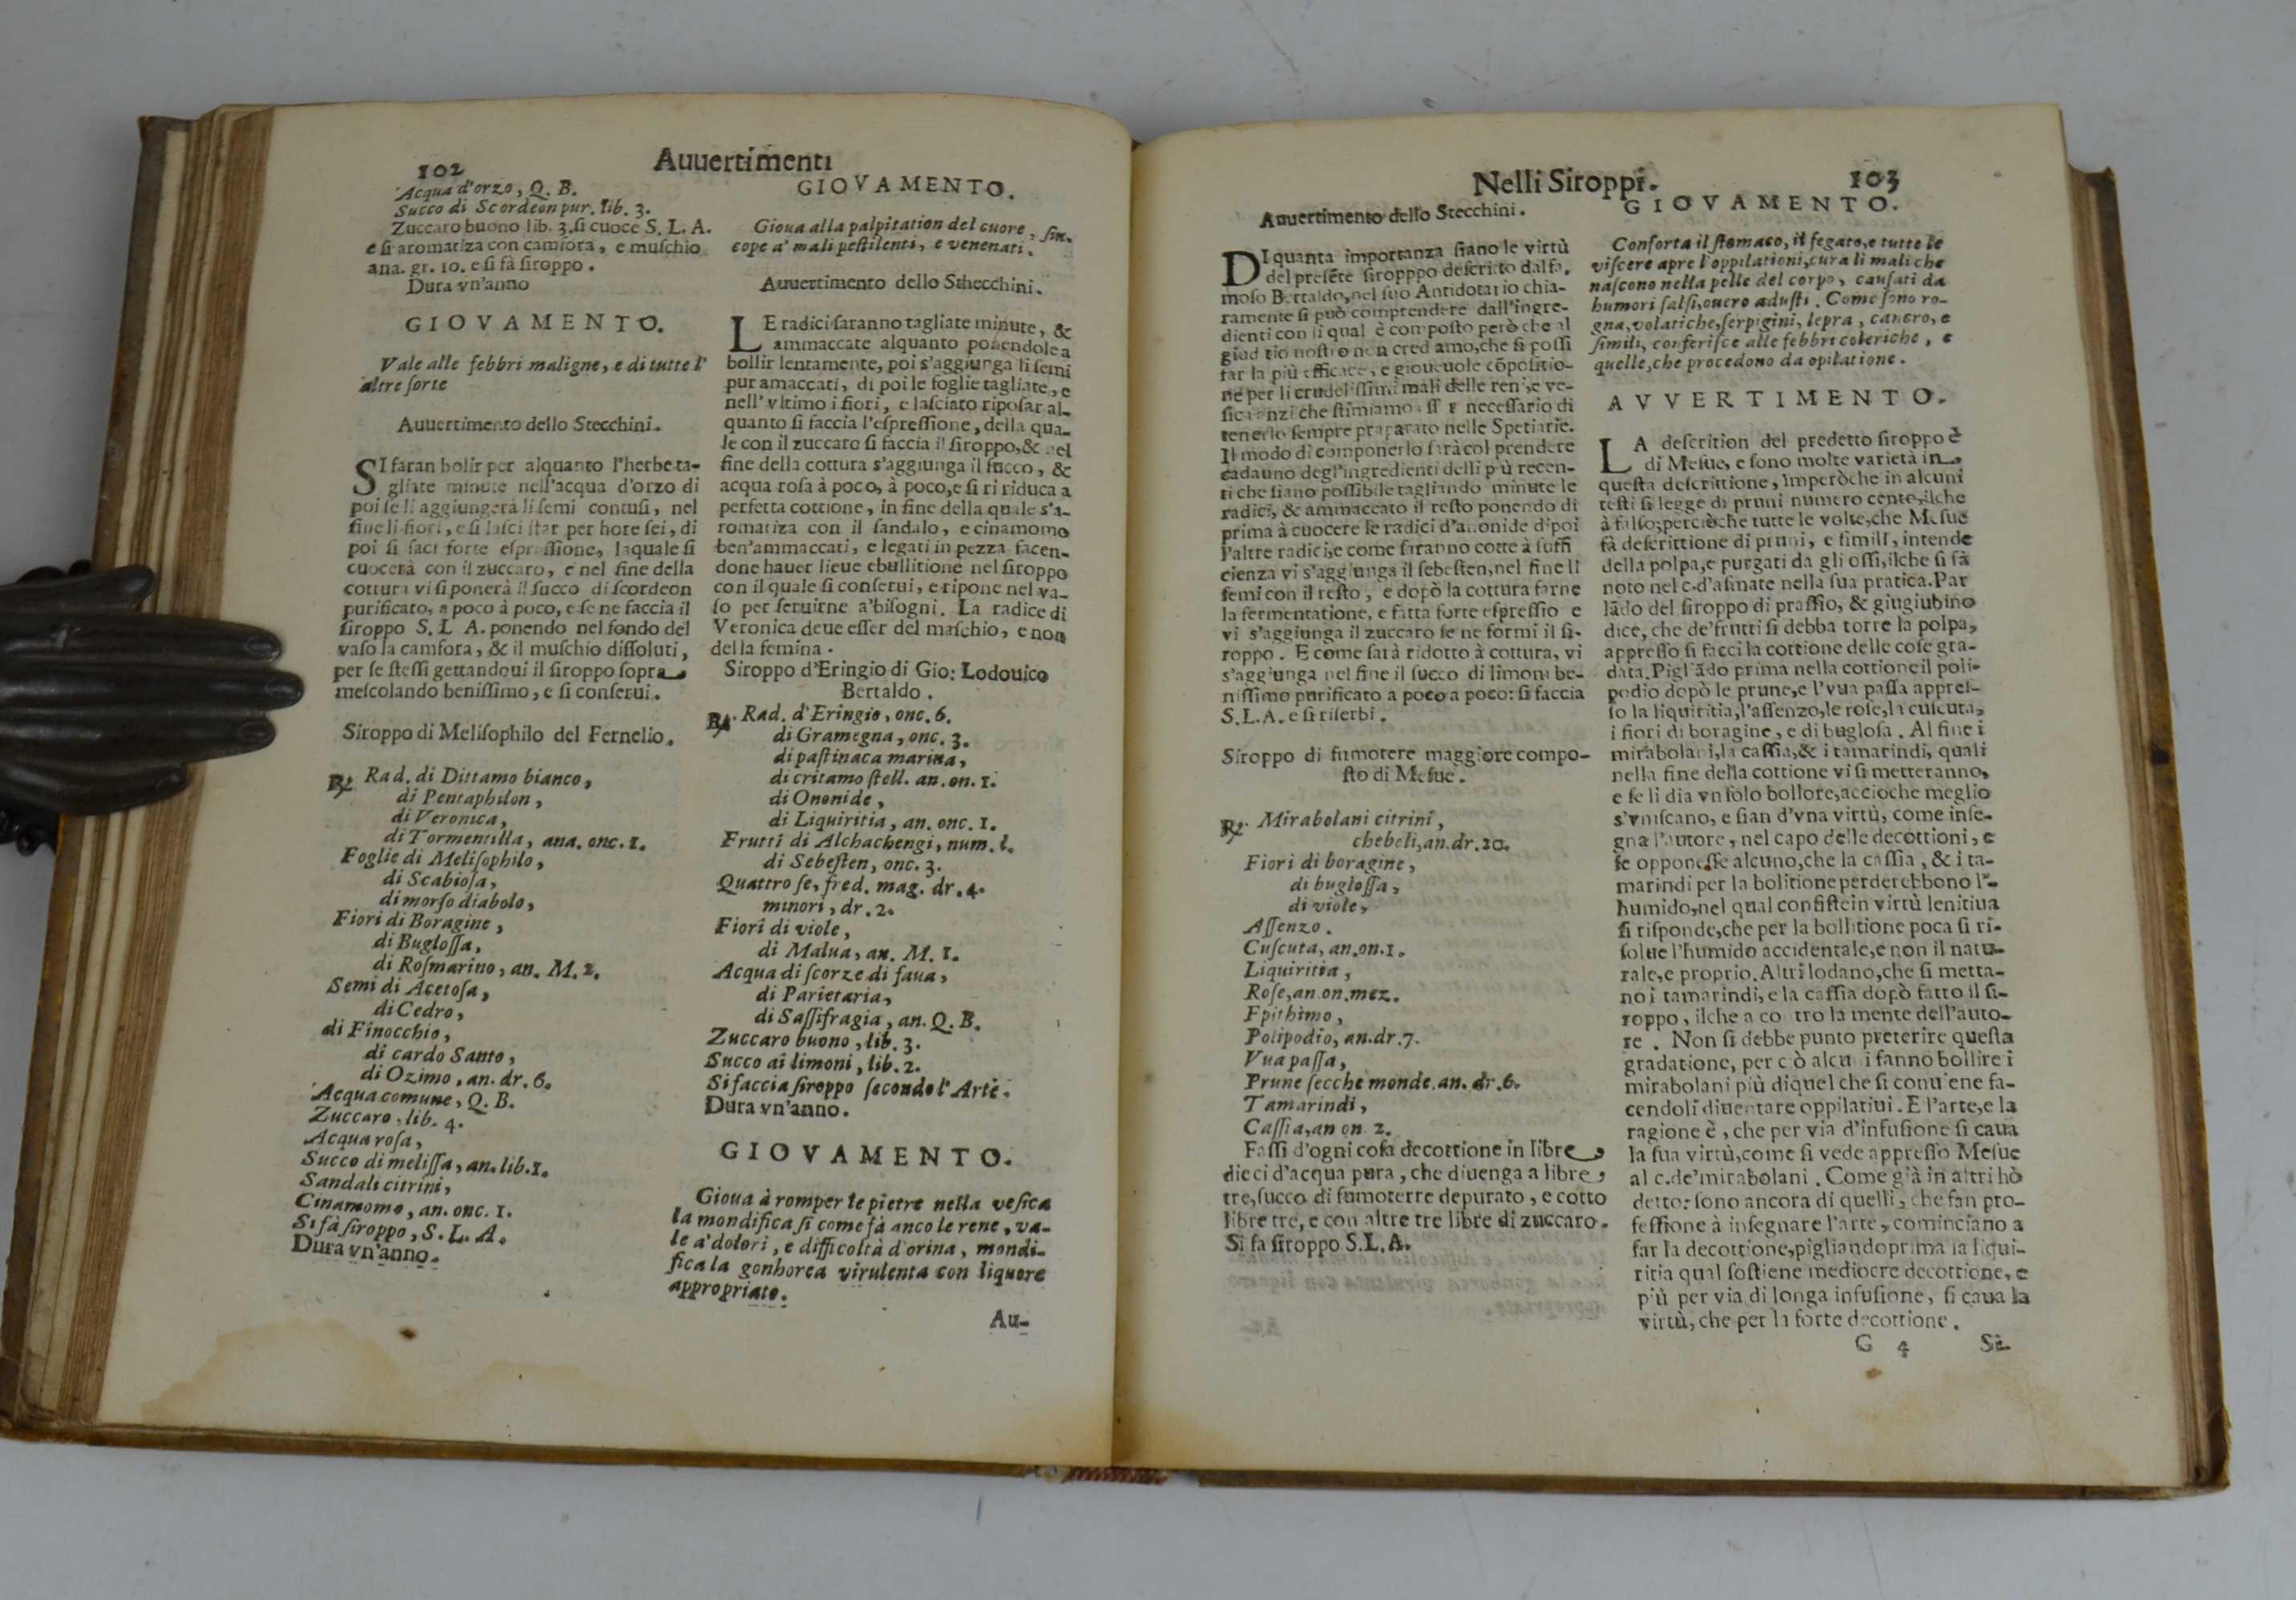 102
Auuertimenti
Acqua d'orzo, Q. B.
Succo di Scordeon pur. lib. 3.
Zuccaro buono lib. 3. si cuoce S. L. A.
e si aromatiza con camfora, e muſchio
ana. gr. 10. e si fà siroppo.
Dura vn'anno
GIOVAMENTO.
Vale alle febbri maligne, e di tutte l'
altre sorte
Auuertimento dello Stecchini.
SI faran bolir per alquanto l'herbe ta-
gliate minute nell'acqua d'orzo di
poi se li aggiungerà li semi contusi, nel
fine li fiori, e si lasci star per hore sei, di
poi si faci forte espressione, laquale si
cuocerà con il zuccaro, e nel fine della
cottura vi si ponerà il succo di scordeon
purificato, a poco à poco, e se ne faccia il
siroppo S. L A. ponendo nel fondo del
vaso la camfora, & il muschio dissoluti,
per se stessi gettandoui il siroppo sopra
mescolando benissimo, e si conserui.
Siroppo di Melisophilo del Fernelio.
℞ Rad. di Dittamo bianco,
di Pentaphilon,
di Veronica,
di Tormentilla, ana. onc. 1.
Foglie di Melisophilo,
di Scabiosa,
di morso diabolo,
Fiori di Boragine,
di Buglossa,
di Rosmarino, an. M. 2.
Semi di Acetosa,
di Cedro,
di Finocchio,
di cardo Santo,
di Ozimo, an. dr. 6.
Acqua comune, Q. B.
Zuccaro, lib. 4.
Acqua rosa,
Succo di melissa, an. lib. 1.
Sandali citrini,
Cinamomo, an. onc. 1.
Si fà siroppo, S. L. A.
Dura vn'anno.
GIOVAMENTO.
Gioua alla palpitation del cuore, sin-
cope a' mali pestilenti, e venenati.
Auuertimento dello Sthecchini.
LE radici saranno tagliate minute, &
ammaccate alquanto ponendole a
bollir lentamente, poi s'aggiunga li semi
pur amaccati, di poi le foglie tagliate, e
nell' vltimo i fiori, e lasciato riposar al-
quanto si faccia l'espressione, della qua-
le con il zuccaro si faccia il siroppo, & nel
fine della cottura s'aggiunga il succo, &
acqua rosa à poco, à poco, e si ri riduca a
perfetta cottione, in fine della quale s'a-
romatiza con il sandalo, e cinamomo
ben'ammaccati, e legati in pezza facen-
done hauer lieue ebullitione nel siroppo
con il quale si conserui, e ripone nel va-
so per seruirne a'bisogni. La radice di
Veronica deue esser del maschio, e non
della femina.
Siroppo d'Eringio di Gio: Lodouico
Bertaldo.
℞. Rad. d'Eringio, onc. 6.
di Gramegna, onc. 3.
di pastinaca marina,
di critamo stell. an. on. 1.
di Ononide,
di Liquiritia, an. onc. 1.
Frutti di Alchachengi, num. l.
di Sebesten, onc. 3.
Quattro se, fred. mag. dr. 4.
minori, dr. 2.
Fiori di viole,
di Malua, an. M. 1.
Acqua di scorze di faua,
di Parietaria,
di Sassifragia, an. Q. B.
Zuccaro buono, lib. 3.
Succo ai limoni, lib. 2.
Si faccia siroppo secondo l'Arte.
Dura vn'anno.
GIOVAMENTO.
Gioua à romper le pietre nella vesica
la mondifica si come fà anco le rene, va-
le a' dolori, e difficoltà d'orina, mondi-
fica la gonhorea virulenta con liquore
appropriato.
Au-
Nelli Siroppi.
103
Auuertimento dello Stecchini.
DI quanta importanza siano le virtù
del presẽte siropppo descritto dal fa-
moso Bertaldo, nel suo Antidotario chia-
ramente si può comprendere dall'ingre-
dienti con li qual è composto però che al
giuditio nostro non crediamo, che si possi
far la più efficace, e gioueuole cõpositio-
ne per li crudelissimi mali delle reni, e ve-
sica anzi che stimiamo esser necessario di
tenerlo sempre praparato nelle Spetiarie.
Il modo di componerlo sarà col prendere
cadauno degl'ingredienti delli più recen-
ti che siano possibile tagliando minute le
radici, & ammaccato il resto ponendo di
prima à cuocere le radici d'anonide di poi
l'altre radici, e come faranno cotte à suffi
cienza vi s'aggiunga il sebesten, nel fine li
semi con il resto, e dopò la cottura farne
la fermentatione, e fatta forte espressio e
vi s'aggiunga il zuccaro se ne formi il si-
roppo. E come sarà ridotto à cottura, vi
s'aggiunga nel fine il succo di limoni be-
nissimo purificato a poco a poco: si faccia
S. L. A. e si riserbi.
Siroppo di fumotere maggiore compo-
sto di Mesue.
℞. Mirabolani citrini,
chebeli, an. dr. 20.
Fiori di boragine,
di buglossa,
di viole,
Assenzo.
Cuscuta, an. on. 1.
Liquiritia,
Rose, an. on. mez.
Epithimo,
Polipodio, an. dr. 7.
Vua passa,
Prune secche monde. an. dr. 6.
Tamarindi,
Cassia, an on. 2.
Fassi d'ogni cosa decottione in libre
dieci d'acqua pura, che diuenga a libre
tre, succo di fumoterre depurato, e cotto
libre tre, e con altre tre libre di zuccaro.
Si fa siroppo S.L.A.
GIOVAMENTO.
Conforta il stomaco, il fegato, e tutte le
viscere apre l'oppilationi, cura li mali che
nascono nella pelle del corpo, causati da
humori salsi, ouero adusti. Come sono ro-
gna, volatiche, serpigini, lepra, cancro, e
simili, conferisce alle febbri coleriche, e
quelle, che procedono da opilatione.
AVVERTIMENTO.
LA descrition del predetto siroppo è
di Mesue, e sono molte varietà in
questa descrittione, imperòche in alcuni
testi si legge di pruni numero cento, ilche
à falso; perciòche tutte le volte, che Mesue
fà descrittione di pruni, e simili, intende
della polpa, e purgati da gli ossi, ilche si fà
noto nel c. d'asmate nella sua pratica. Par
lãdo del siroppo di prassio, & giugiubino
dice, che de'frutti si debba torre la polpa,
appresso si facci la cottione delle cose gra-
data. Pigliãdo prima nella cottione il poli-
podio dopò le prune, e l'vua passa appres-
so la liquiritia, l'assenzo, le rose, la cuscuta,
i fiori di boragine, e di buglosa. Al fine i
mirabolani, la cassia, & i tamarindi, quali
nella fine della cottione vi si metteranno,
e se li dia vn solo bollore, accioche meglio
s'vniscano, e sian d'vna virtù, come inse-
gna l'autore, nel capo delle decottioni, e
se opponesse alcuno, che la cassia, & i ta-
marindi per la bolitione perderebbono l'-
humido, nel qual consiste in virtù lenitiua
si risponde, che per la bollitione poca si ri-
solue l'humido accidentale, e non il natu-
rale, e proprio. Altri lodano, che si metta-
no i tamarindi, e la cassia dopò fatto il si-
roppo, ilche a co tro la mente dell'auto-
re. Non si debbe punto preterire questa
gradatione, per c ò alcuni fanno bollire i
mirabolani più di quel che si conuiene fa-
cendoli diuentare oppilatiui. E l'arte, e la
ragione è, che per via d'infusione si caua
la sua virtù, come si vede appresso Mesue
al c. de'mirabolani. Come già in altri hò
detto: sono ancora di quelli, che fan pro-
fessione à insegnare l'arte, cominciano a
far la decottione, pigliando prima la liqui-
ritia qual sostiene mediocre decottione, e
più per via di longa infusione, si caua la
virtù, che per la forte decottione.
G 4
Si-